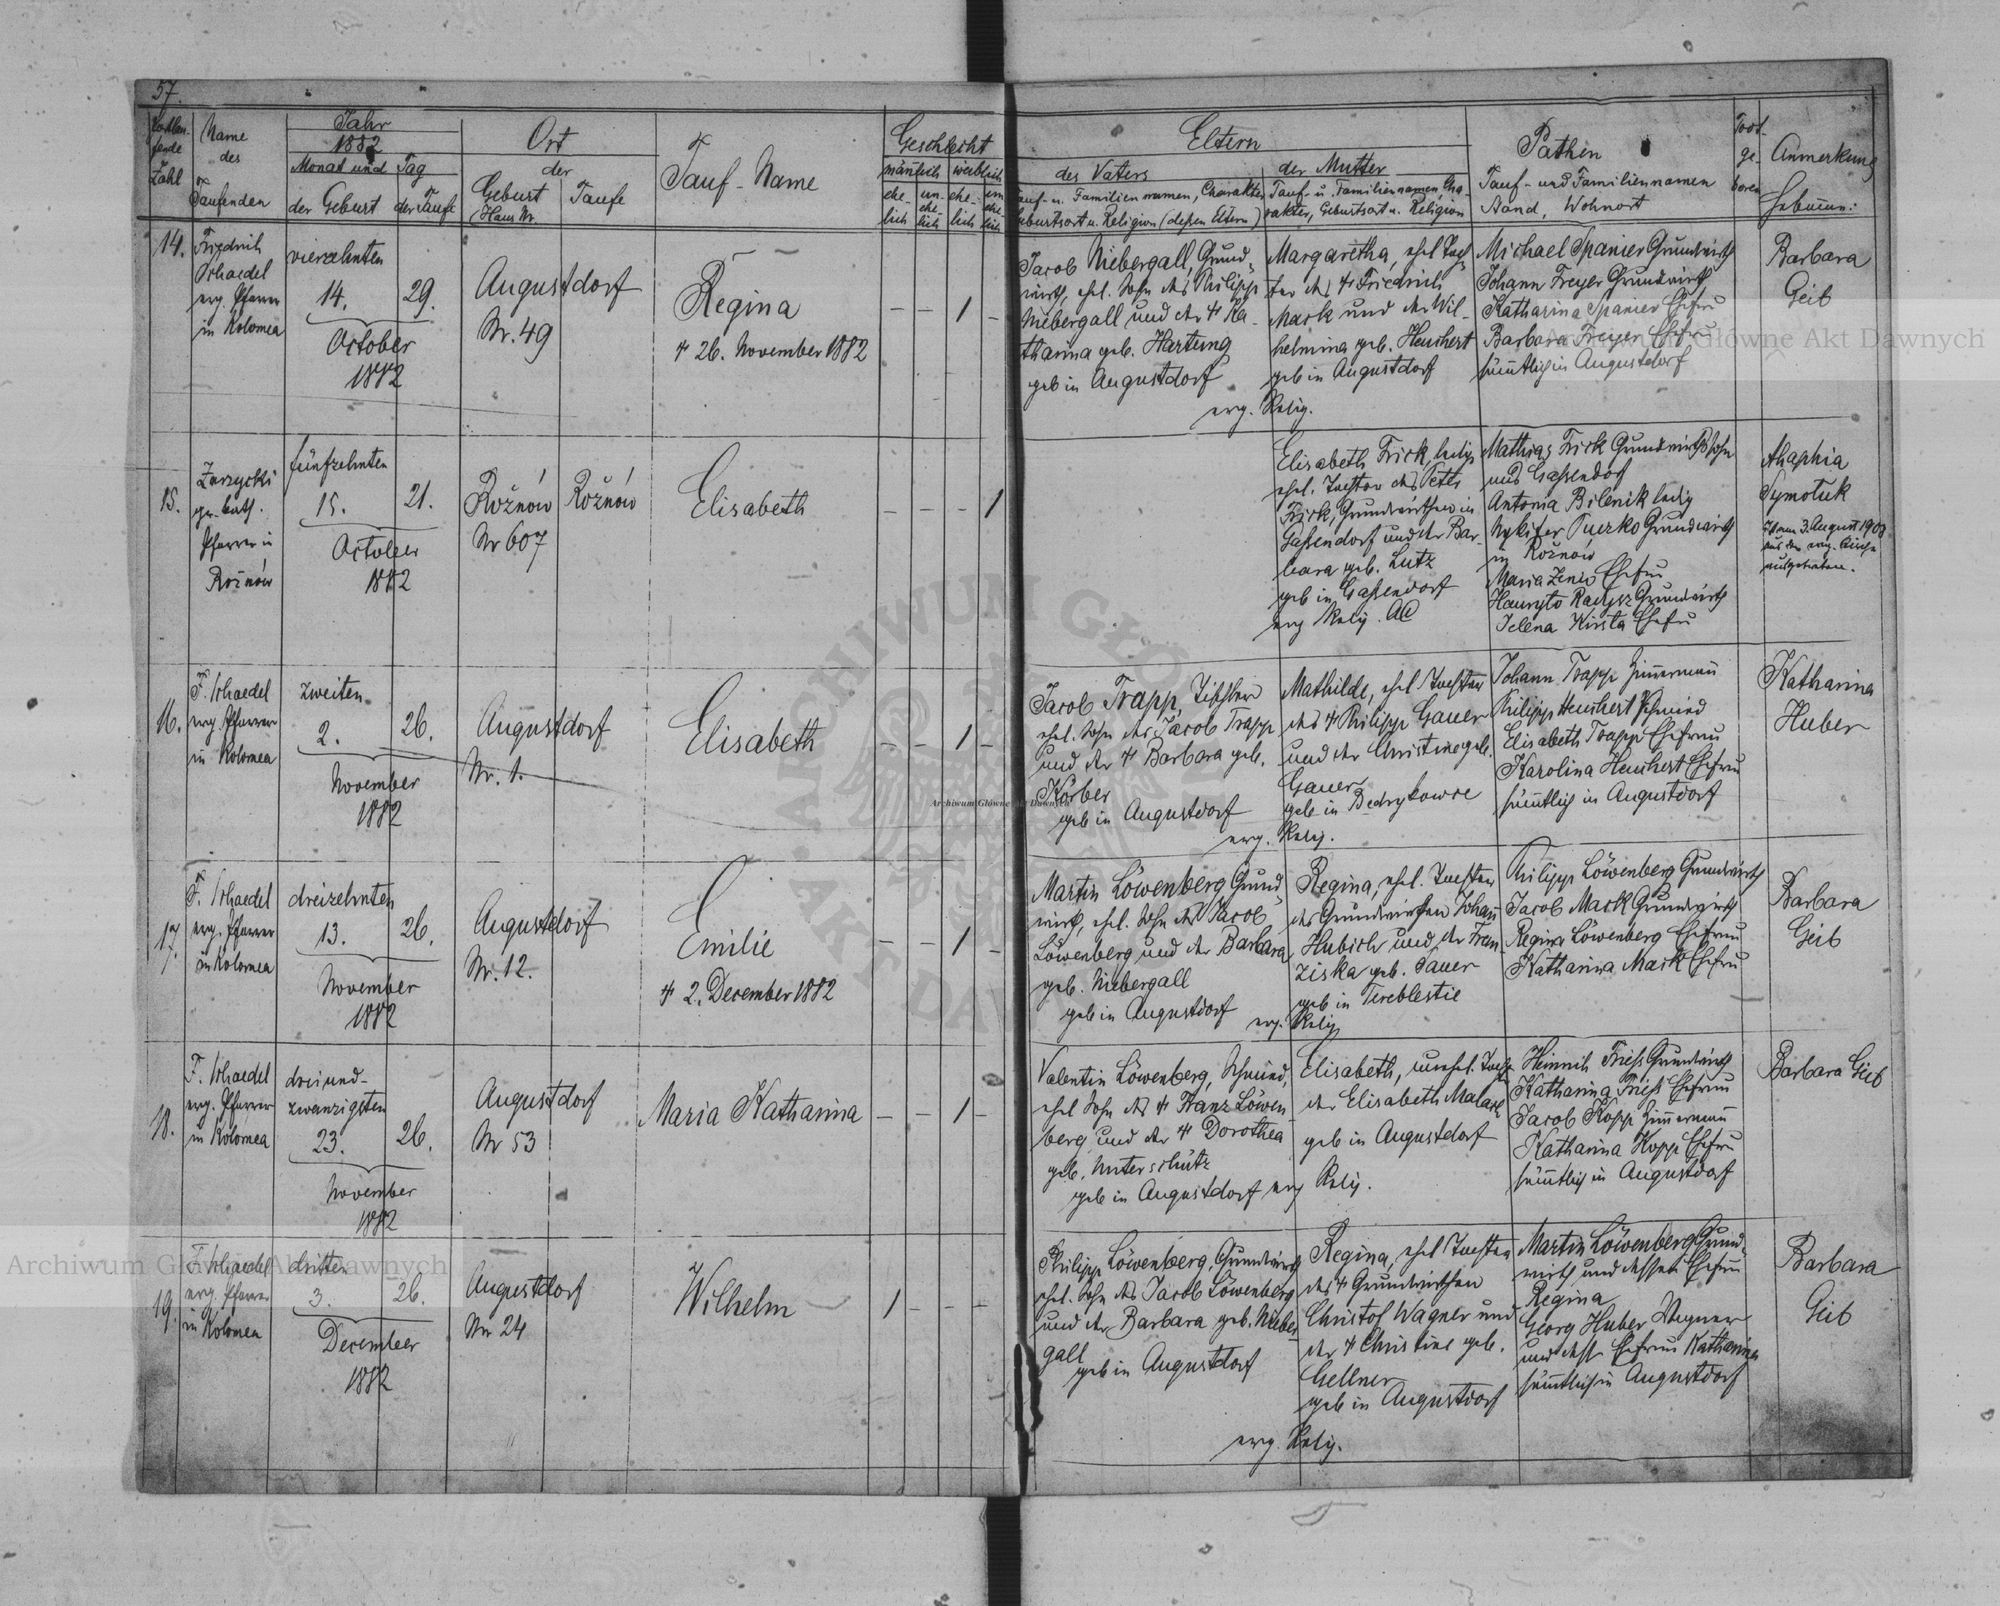 57.
Fortlau-
fende
Zahl
Name
des
Taufenden
Jahr
1882
Monat und Tag
der Geburt
der Taufe
Ort
der
Geburt
(Haus Nr.
Taufe
Tauf-Name
Geschlecht
männlich
weiblich
ehe-
lich
un-
ehe-
lich
ehe-
lich
un
ehe-
lich
Eltern
des Vaters
Tauf- u. Familiennamen, Charakter
Geburtsort u. Religion (dessen Eltern)
der Mutter
Tauf- u. Familiennamen Cha-
rakter, Geburtsort u. Religion
Pathen
Tauf- und Familiennamen
Stand, Wohnort
Todt-
ge-
boren
Anmerkung
Hebamme:
14.
Friedrich
Schaedel
erg. Pfarrer
in Kolomea
vierzehnten
14.
29.
October
1882
Augustdorf
Nr. 49
Regina
† 26. November 1882
– – 1 –
Jacob Niebergall, Grund-
wirth, ehel. Sohn des Philipp
Niebergall und der † Ka-
tharina geb. Hartung
geb in Augustdorf
Margaretha, ehel Toch-
ter des † Friedrich
Mack und der Wil-
helmina geb. Heuchert
geb in Augustdorf
erg. Relig.
Michael Spanier Grundwirth
Johann Freyer Grundwirth
Katharina Spanier Ehefrau
Barbara Freyer Ehefrau
sämmtlich in Augustdorf
Barbara
Geib
15.
Zarzycki
gr. kath.
Pfarrer in
Rożnów
fünfzehnten
15.
21.
October
1882
Rożnów
Nr 607
Rożnów
Elisabeth
– – – 1
Elisabeth Frick, ledig
ehel. Tochter des Peter
Frick, Grundwirthen in
Gaßendorf und der Bar-
bara geb. Lutz
geb in Gaßendorf
erg Relig. AC
Mathias Frick Grundwirthssohn
aus Gaßendorf
Antonia Bilenik ledig
Nykifer Tuerko Grundwirth
in Rożnów
Maria Zenio Ehefrau
Grundwirth
Jelena Kirsta Ehefrau
Ahaphia
Symotuk
Ist am 3. August 1908
aus der evg. Kirche
ausgetreten.
16.
F. Schaedel
erg. Pfarrer
in Kolomea
zweiten
2.
26.
November
1882
Augustdorf
Nr. 1.
Elisabeth
– – 1 –
Jacob Trapp, Tischler
ehel. Sohn des Jacob Trapp
und der † Barbara geb.
Körber
geb in Augustdorf
Mathilde, ehel Tochter
des † Philipp Gauer
und der Christine geb.
Gauer
geb in Bedrykowce
erg. Relig.
Johann Trapp Zimmermann
Philipp Heuchert Schmied
Elisabeth Trapp Ehefrau
Karolina Heuchert Ehefrau
sämmtlich in Augustdorf
Katharina
Huber
17.
F. Schaedel
erg. Pfarrer
in Kolomea
dreizehnten
13.
26.
November
1882
Augustdorf
Nr. 12.
Emilie
† 2. December 1882
– – 1 –
Martin Löwenberg Grund-
wirth, ehel. Sohn des Jacob
Löwenberg und der Barbara
geb. Niebergall
geb in Augustdorf
Regina, ehel. Tochter
des Grundwirthen Johann
Hubich und der Fran-
ziska geb. Sauer
geb in Tereblestie
erg. Relig
Philipp Löwenberg Grundwirth
Jacob Mack Grundwirth
Regina Löwenberg Ehefrau
Katharina Mack Ehefrau
Barbara
Geib
18.
F. Schaedel
erg. Pfarrer
in Kolomea
dreiund-
zwanzigsten
23.
26.
November
1882
Augustdorf
Nr 53
Maria Katharina
– – 1 –
Valentin Löwenberg, Schmied,
ehel Sohn des † Franz Löwen-
berg und der † Dorothea
geb. Unterschütz
geb in Augustdorf erg Relig.
Elisabeth, unehel. Tochter
der Elisabeth
geb in Augustdorf
Heinrich Frieß Grundwirth
Katharina Frieß Ehefrau
Jacob Kopp Zimmermann
Katharina Kopp Ehefrau
sämmtlich in Augustdorf
Barbara Geib
19.
F. Schaedel
erg. Pfarrer
in Kolomea
dritten
3.
26.
December
1882
Augustdorf
Nr 24
Wilhelm
1 – – –
Philipp Löwenberg, Grundwirth
ehel. Sohn des Jacob Löwenberg
und der Barbara geb. Nieber-
gall
geb in Augustdorf
Regina, ehel Tochter
des † Grundwirthen
Christof Wagner und
der † Christine geb.
Gellner
geb in Augustdorf
erg. Relig.
Martin Löwenberg Grund-
wirth und dessen Ehefrau
Regina
Georg Huber Wagner
und dess. Ehefrau Katharina
sämmtlich in Augustdorf
Barbara
Geib
Archiwum Główne Akt Dawnych
Archiwum Główne Akt Dawnych
Archiwum Główne Akt Dawnych
ARCHIWUM GŁÓWNE AKT DAWNYCH